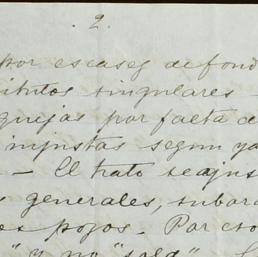 2.
por escasez de fond
titutos singulares -
quejas por falta de
injustas segun ya
- El trato se ajus
s generales, subor
es pojos. Por eso
" y no "sala"